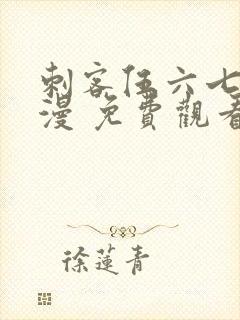 刺客伍六七
漫 免費觀看
徐蓮青